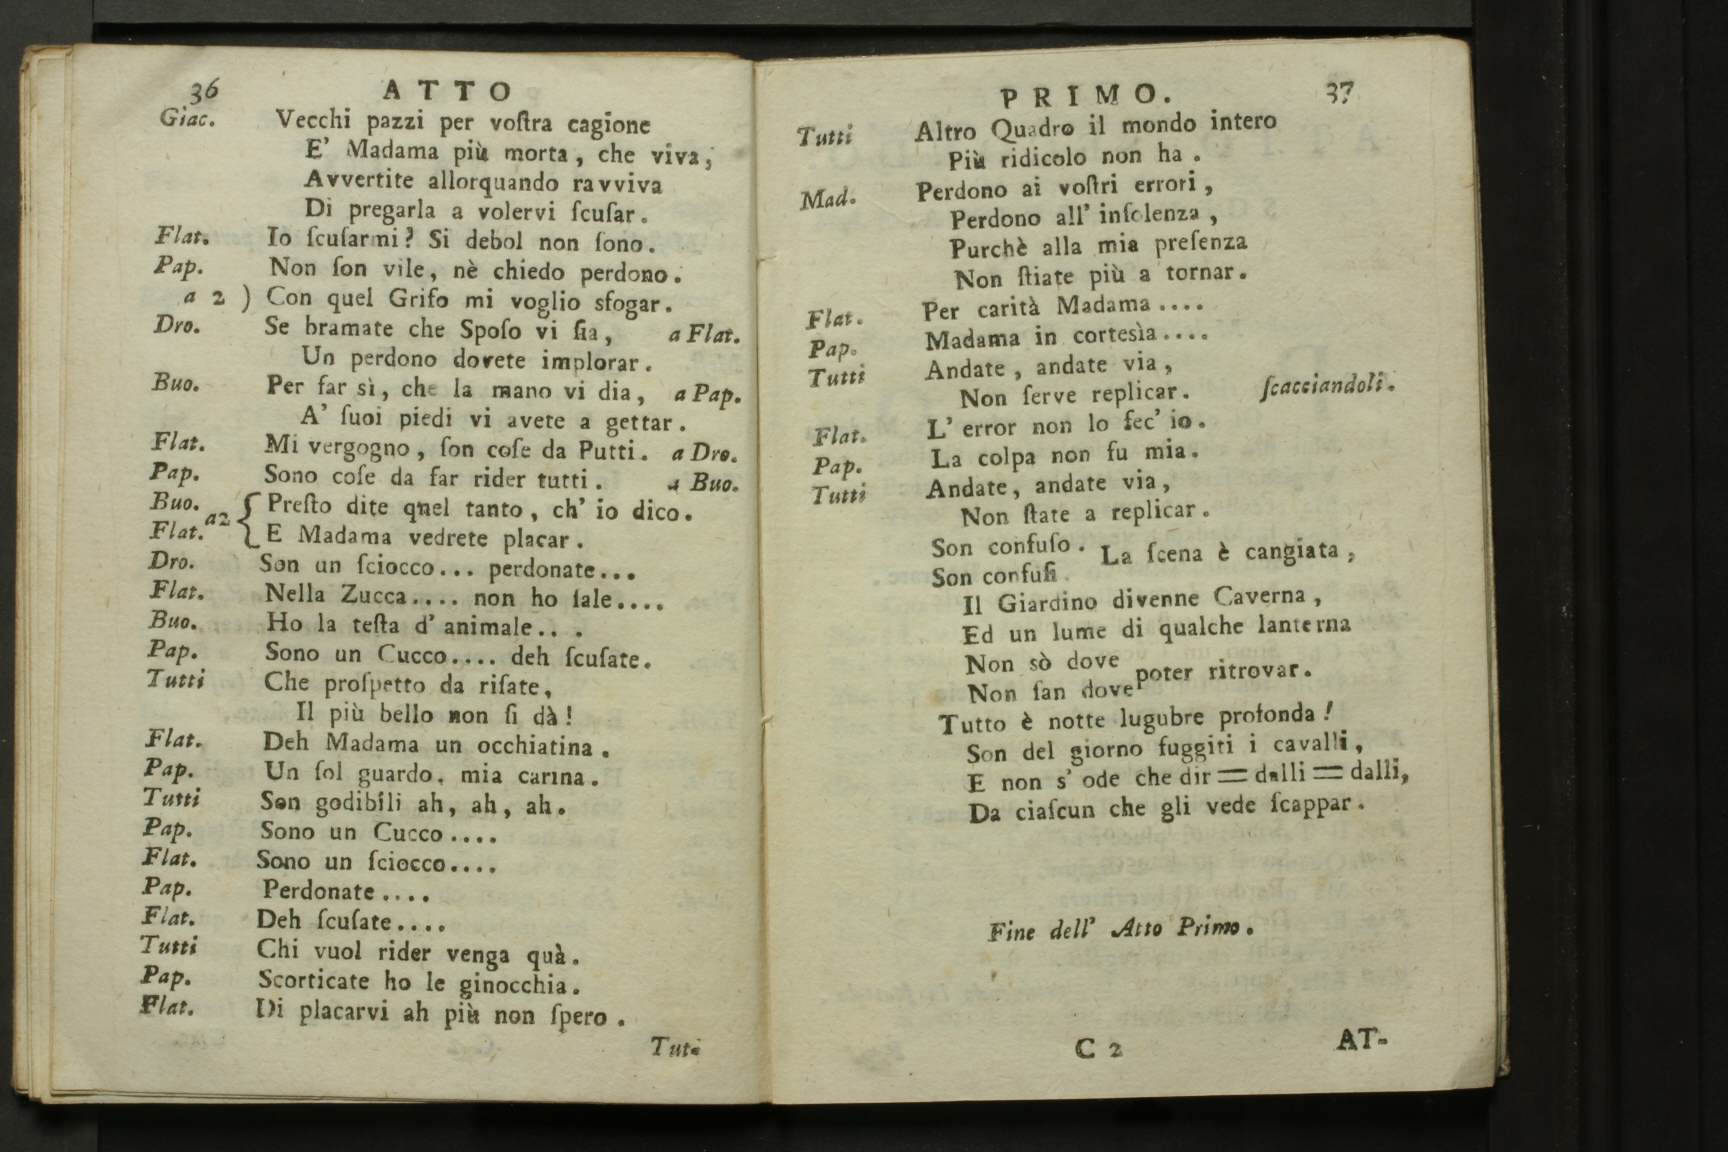 36 ATTO
Giac. Vecchi pazzi per voſtra cagione
E' Madama più morta, che viva,
Avvertite allorquando ravviva
Di pregarla a volervi ſcuſar.
Flat. Io ſcuſarmi? Si debol non ſono.
Pap. Non ſon vile, nè chiedo perdono.
a 2 ) Con quel Grifo mi voglio sfogar.
Dro. Se bramate che Spoſo vi ſia, a Flat.
Un perdono dovete implorar.
Buo. Per far sì, che la mano vi dia, a Pap.
A' ſuoi piedi vi avete a gettar.
Flat. Mi vergogno, ſon coſe da Putti. a Dro.
Pap. Sono coſe da far rider tutti. a Buo.
Buo. a2 { Preſto dite quel tanto, ch' io dico.
Flat. E Madama vedrete placar.
Dro. Son un ſciocco... perdonate...
Flat. Nella Zucca.... non ho ſale....
Buo. Ho la teſta d' animale.. .
Pap. Sono un Cucco.... deh ſcuſate.
Tutti Che proſpetto da riſate,
Il più bello non ſi dà!
Flat. Deh Madama un occhiatina.
Pap. Un ſol guardo, mia carina.
Tutti Son godibili ah, ah, ah.
Pap. Sono un Cucco....
Flat. Sono un ſciocco....
Pap. Perdonate....
Flat. Deh ſcuſate....
Tutti Chi vuol rider venga quà.
Pap. Scorticate ho le ginocchia.
Flat. Di placarvi ah più non ſpero.
Tut-
PRIMO. 37
Tutti Altro Quadro il mondo intero
Più ridicolo non ha.
Mad. Perdono ai voſtri errori,
Perdono all' inſolenza,
Purchè alla mia preſenza
Non ſtiate più a tornar.
Flat. Per carità Madama....
Pap. Madama in cortesìa....
Tutti Andate, andate via,
Non ſerve replicar. ſcacciandoli.
Flat. L' error non lo fec' io.
Pap. La colpa non fu mia.
Tutti Andate, andate via,
Non ſtate a replicar.
Son confuſo. La ſcena è cangiata,
Son confuſi.
Il Giardino divenne Caverna,
Ed un lume di qualche lanterna
Non sò dove poter ritrovar.
Non ſan dove
Tutto è notte lugubre profonda!
Son del giorno fuggiti i cavalli,
E non s' ode che dir = dalli = dalli,
Da ciaſcun che gli vede ſcappar.
Fine dell' Atto Primo.
C 2 AT-